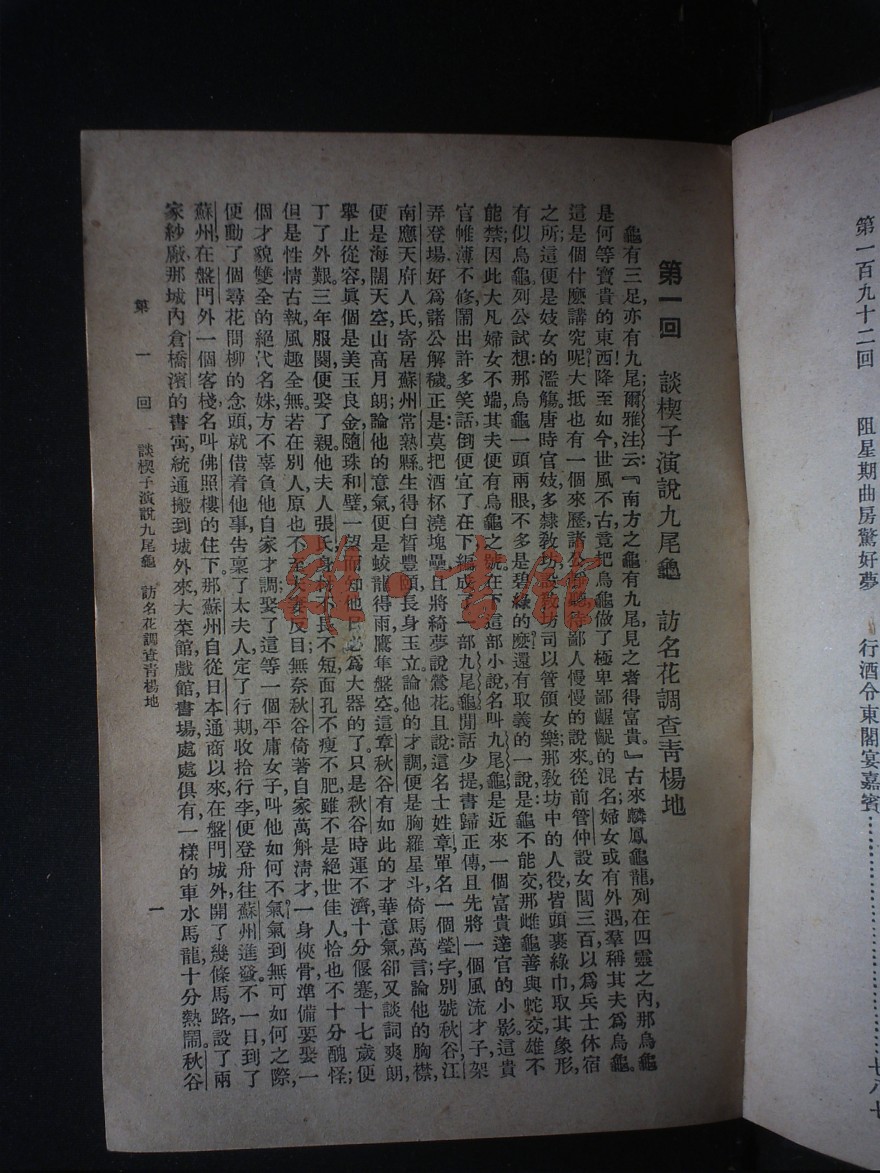 第一百九十二回　阻星期曲房驚好夢　行酒令東閣宴嘉賓……………七八七
第一回　談楔子演說九尾龜　訪名花調查青楊地
龜有三足,亦有九尾,爾雅注云:『南方之龜有九尾,見之者得富貴。』古來麟鳳龜龍,列在四靈之內,那烏龜
是何等寶貴的東西!降至如今,世風不古,竟把烏龜做了極卑鄙齷齪的混名,婦女或有外遇,羣稱其夫爲烏龜。
這是個什麽講究呢?大抵也有一個來歷,諸公 鄙人慢慢的說來。從前管仲設女閭三百,以爲兵士休宿
之所,這便是妓女的濫觴。唐時官妓多隸敎坊, 敎坊司以管領女樂,那敎坊中的人役,皆頭裹綠巾,取其象形,
有似烏龜。列公試想:那烏龜一頭兩眼,不多是碧綠的麽?還有取義的一說:是龜不能交,那雌龜善與蛇交,雄不
能禁;因此大凡婦女不端,其夫便有烏龜之號。在下這部小說,名叫九尾龜,是近來一個富貴達官的小影。這貴
官帷薄不修,鬧出許多笑話,倒便宜了在下,編成 一部九尾龜。閒話少提,書歸正傳,且先將一個風流才子,架
弄登場,好爲諸公解穢。正是:莫把酒杯澆塊壘,且將綺夢說鶯花。且說這名士姓章,單名一個瑩字,別號秋谷,江
南應天府人氏,寄居蘇州常熟縣。生得白皙豐頤,長身玉立,論他的才調,便是胸羅星斗,倚馬萬言;論他的胸襟,
便是海闊天空,山高月朗;論他的意氣,便是蛟龍得雨,鷹隼盤空。這章秋谷有如此的才華意氣,卻又談詞爽朗,
舉止從容,眞個是美玉良金,隨珠和璧,一望而知他日必爲大器的了。只是秋谷時運不濟,十分偃蹇,十七歲便
丁了外艱。三年服闋,便娶了親。他夫人張氏,身材不長不短,面孔不瘦不肥,雖不是絕世佳人,恰也不十分醜怪;
但是性情古執,風趣全無。若在別人,原也不至 反目;無奈秋谷倚著自家萬斛淸才,一身俠骨,準備要娶一
個才貌雙全的絕代名姝,方不辜負他自家才調;娶了這等一個平庸女子,叫他如何不氣?氣到無可如何之際,
便動了個尋花問柳的念頭,就借着他事,吿稟了太夫人,定了行期,收拾行李,便登舟往蘇州進發。不一日,到了
蘇州,在盤門外一個客棧名叫佛照樓的住下。那蘇州自從日本通商以來,在盤門城外開了幾條馬路,設了兩
家紗廠,那城內倉橋濱的書寓,統通搬到城外來,大菜館、戲館、書場,處處俱有,一樣的車水馬龍,十分熱鬧。秋谷
第一回　談楔子演說九尾龜　訪名花調查青楊地　一